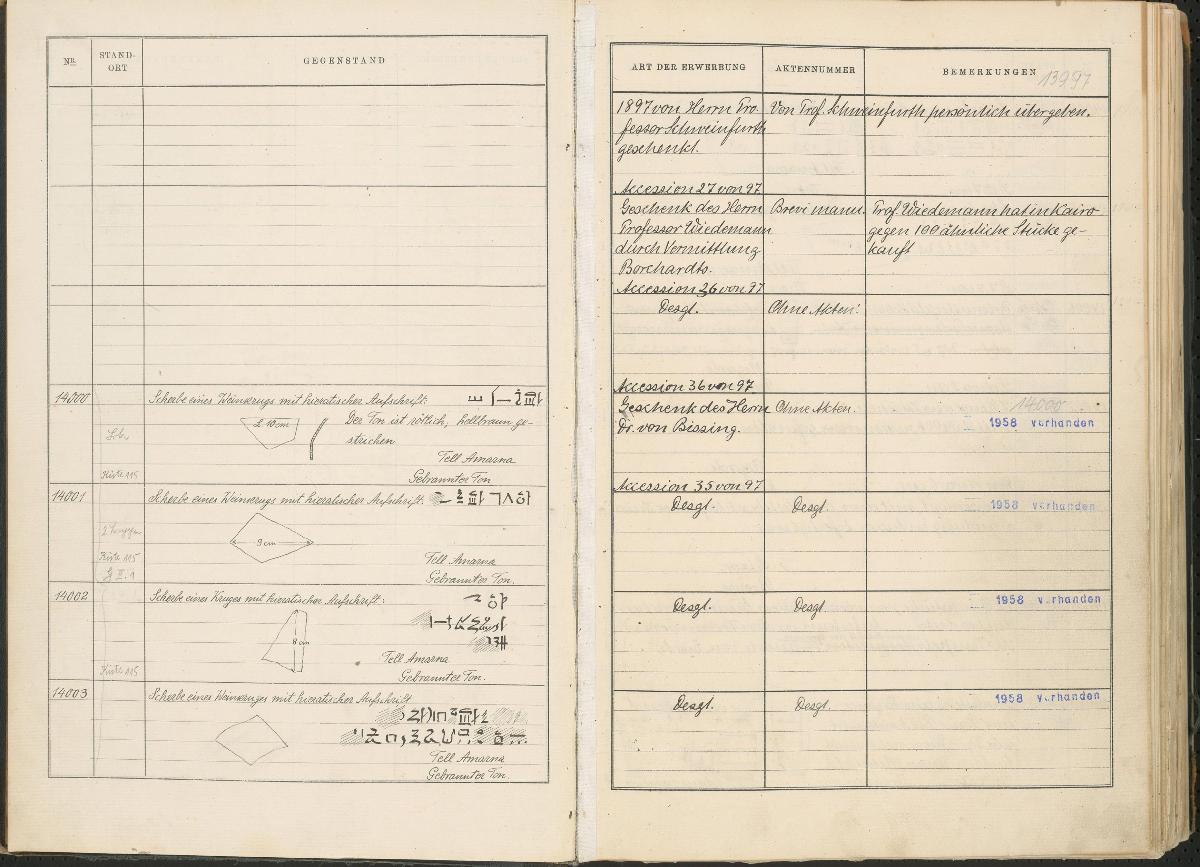 NR.
STAND-
ORT
GEGENSTAND
14000
Scherbe eines Weinkrugs mit hieratischer Aufschrift:
L 10 cm
Der Ton ist rötlich, hellbraun ge-
strichen
Tell Amarna
Kiste 115
Gebrannter Ton
14001
Scherbe eines Weinkrugs mit hieratischer Aufschrift:
9 cm
Kiste 115
Tell Amarna
Gebrannter Ton.
14002
Scherbe eines Kruges mit hieratischer Aufschrift:
8 cm
Tell Amarna
Kiste 115
Gebrannter Ton.
14003
Scherbe eines Weinkruges mit hieratischer Aufschrift
Tell Amarna
Gebrannter Ton.
ART DER ERWERBUNG
AKTENNUMMER
BEMERKUNGEN
13997
1897 von Herrn Pro-
fessor Schweinfurth
geschenkt.
Von Prof. Schweinfurth persönlich übergeben.
Accession 27 von 97
Geschenk des Herrn
Professor Wiedemann
durch Vermittlung
Borchardts.
Brevi manu.
Prof. Wiedemann hat in Kairo
gegen 100 ähnliche Stücke ge-
kauft
Accession 36 von 97
Desgl.
Ohne Akten!
Accession 36 von 97
Geschenk des Herrn
Dr. von Bissing.
Ohne Akten.
14000
1958 vorhanden
Accession 35 von 97
Desgl.
Desgl.
1958 vorhanden
Desgl.
Desgl
1958 vorhanden
Desgl.
Desgl.
1958 vorhanden